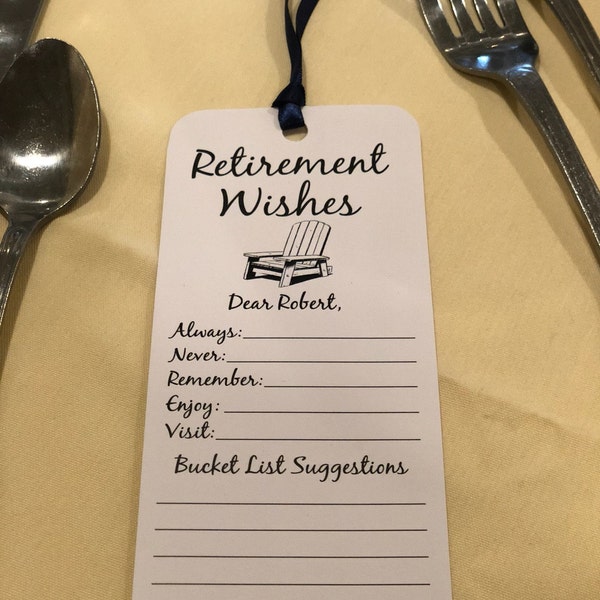 Retirement
Wishes
Dear Robert,
Always:
Never:
Remember:
Enjoy:
Visit:
Bucket List Suggestions